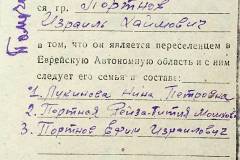 ся гр. Портнов
Израиль Хаимович
в том, что он является переселенцем в
Еврейскую Автономную область и с ним
следует его семья в составе:
1. Лукинова Нина Петровна
2. Портная Рейза-Гитля
3. Портнов Ефим Израилович